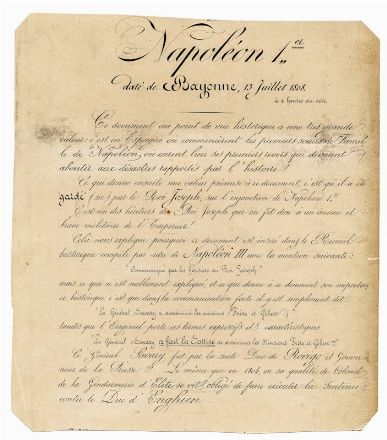 Napoléon 1er
daté de Bayonne, 13 Juillet 1808.
à 10 heures du soir.
Ce document au point de vue historique a une très grande
valeur: c'est en Espagne où commencèrent les premiers soucis de Famil
le de Napoléon, où eurent lieu des premiers revers qui devaient
aboutir aux désastres rapportés par l'histoire!
Ce qui donne ensuite une valeur précieuse à ce document, c'est qu'il a été
gardé (sic) par le Roi Joseph, sur l'injonction de Napoléon 1er
C'est un des héritiers du Roi Joseph qui en fit don à un ancien et
brave militaire de l'Empereur!
Cela nous explique pourquoi ce document est inséré dans le Recueil
historique compilé par ordre de Napoléon III avec la mention suivante:
"Communiqué par les héritiers du Roi Joseph"
mais ce qui n'est nullement expliqué, et ce qui donne à ce document son importan
ce historique, c'est que dans la communication faite il y est simplement dit:
"Le Général Savary a assassiné les messieurs Frère et Gobert"
tandis que l'original porte ces termes expressifs et caractéristiques
Le Général Savary a fait la sottise de
Le Général Savary fut par la suite Duc de Rovigo et Gouver
neur de la Prusse Le même qui en 1804, en sa qualité de Colonel
de la Gendarmerie d'Elite se vit obligé de faire exécuter la sentence
contre le Duc d'Enghien